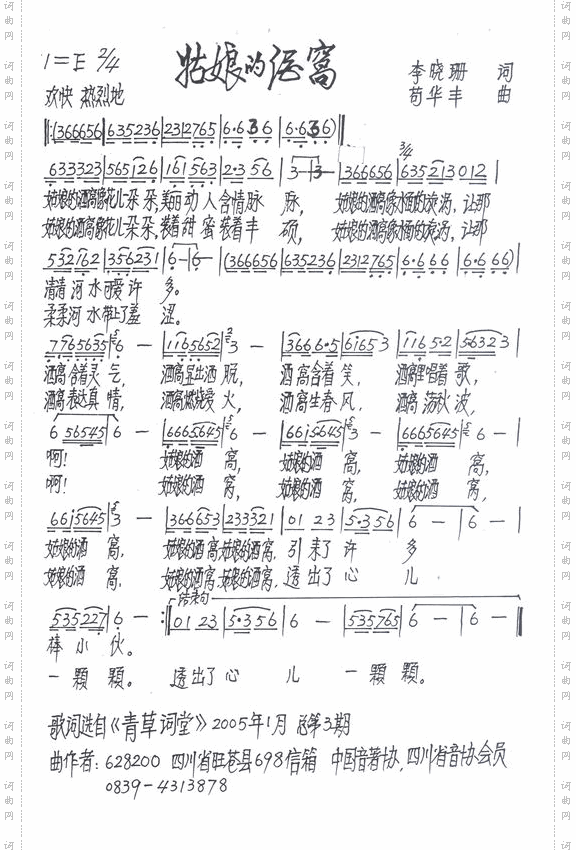 姑娘的酒窝
1=E 2/4
李晓珊 词
欢快 热烈地
苟华丰 曲
‖:(366656|635236|2312765|6·636|6·636)‖
3/4
633323|565126|161563|2·356|3-|3-|366656|635213012|
姑娘的酒窝像花儿朵朵,美丽动人含情脉脉,姑娘的酒窝像水面的漩涡,让那
姑娘的酒窝像花儿朵朵,装着甜蜜装着丰硕,姑娘的酒窝像水面的漩涡,让那
532762|356231|6-|6-|(366656|635236|2312765|6·666|6·666)|
清清河水可爱许多。
柔柔河水带上了羞涩。
7765635|6-|1165652|3-|3666·5|61653|1165·2|56323|
酒窝含着灵气,酒窝显出洒脱,酒窝含着笑,酒窝里唱着歌,
酒窝表达真情,酒窝燃烧爱火,酒窝生春风,酒窝荡秋波,
656545|6-|6665645|6-|6615645|3-|6665645|6-|
啊!姑娘的酒窝,姑娘的酒窝,姑娘的酒窝,
啊!姑娘的酒窝,姑娘的酒窝,姑娘的酒窝,
66i5645|3-|366653|233321|0123|5·356|6-|6-|
姑娘的酒窝,姑娘的酒窝,姑娘的酒窝,引来了许多
姑娘的酒窝,姑娘的酒窝,姑娘的酒窝,透出了心儿
结束句
535227|6-:‖0123|5·356|6-|535765|6-|6-‖
棒小伙。
一颗颗。透出了心儿一颗颗。
歌词选自《青草词堂》2005年1月 总第3期
曲作者:628200 四川省旺苍县698信箱 中国音著协,四川省音协会员
0839-4313878
词曲网